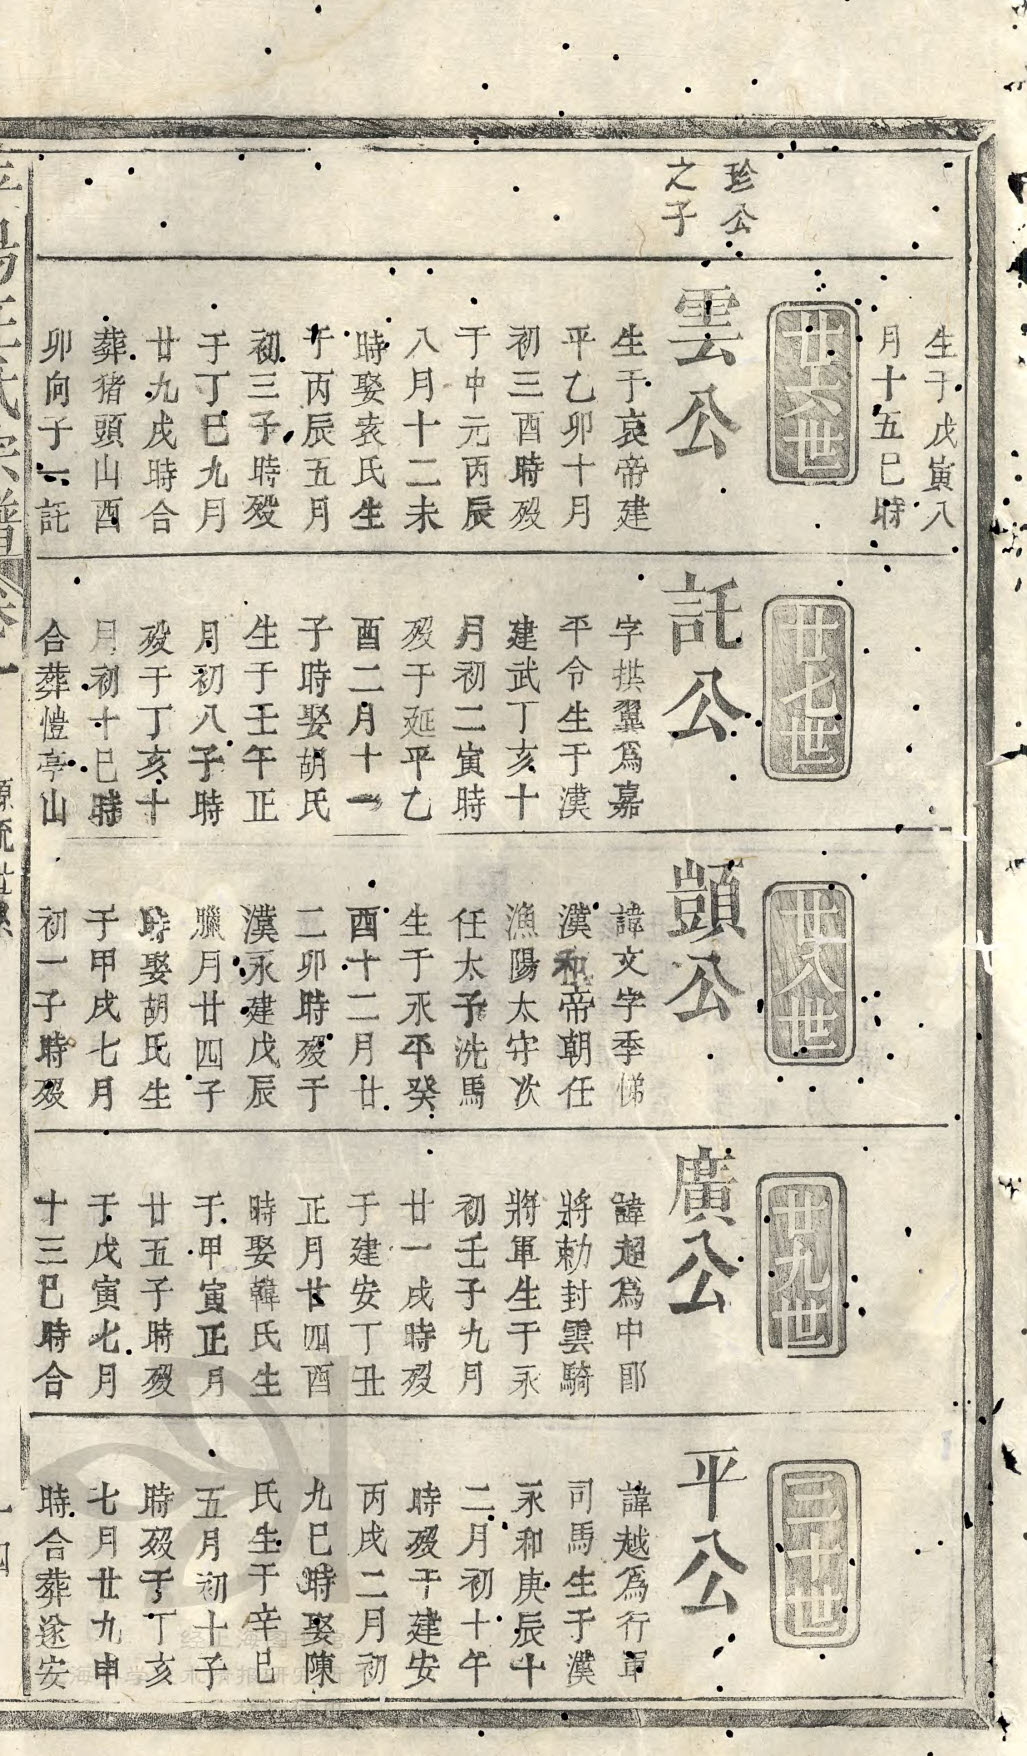 珍公
之子
生于戊寅八
月十五巳時
廿六世
雲公
生于哀帝建
平乙卯十月
初三酉時歿
于中元丙辰
八月十二未
時娶袁氏生
于丙辰五月
初三子時歿
于丁巳九月
廿九戌時合
葬猪頭山酉
卯向子一託
廿七世
託公
字拱翼爲嘉
平令生于漢
建武丁亥十
月初二寅時
歿于延平乙
酉二月十一
子時娶胡氏
生于壬午正
月初八子時
歿于丁亥十
月初十巳時
合葬愷亭山
廿八世
顗公
諱文字季悌
漢和帝朝任
漁陽太守次
任太子洗馬
生于永平癸
酉十二月廿
二卯時歿于
漢永建戊辰
臘月廿四子
時娶胡氏生
于甲戌七月
初一子時歿
廿九世
廣公
諱超爲中郎
將勅封雲騎
將軍生于永
初壬子九月
廿一戌時歿
于建安丁丑
正月廿四酉
時娶韓氏生
于甲寅正月
廿五子時歿
于戊寅七月
十三巳時合
三十世
平公
諱越爲行軍
司馬生于漢
永和庚辰十
二月初十午
時歿于建安
丙戌二月初
九巳時娶陳
氏生于辛巳
五月初十子
時歿于丁亥
七月廿九申
時合葬遂安